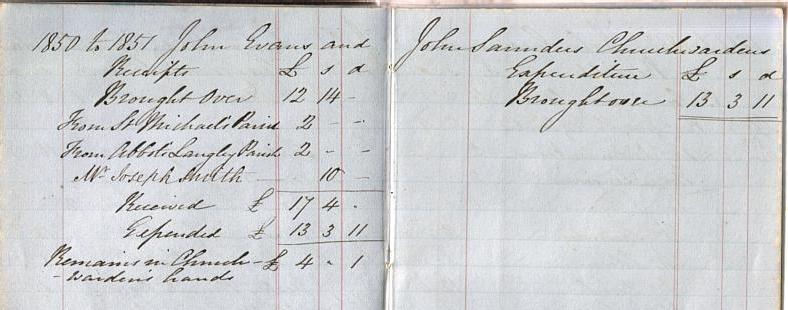 1850 to 1851 John Evans and
Receipts £ s d
Brought Over 12 14 -
From St Michael's Parish 2 - -
From Abbots Langley Parish 2 - -
Mr Joseph Smith - 10 -
Received £ 17 4 -
Expended £ 13 3 11
Remains in Church- £ 4 - 1
-warden's hands
John Saunders Churchwardens
Expenditure £ s d
Brought over 13 3 11